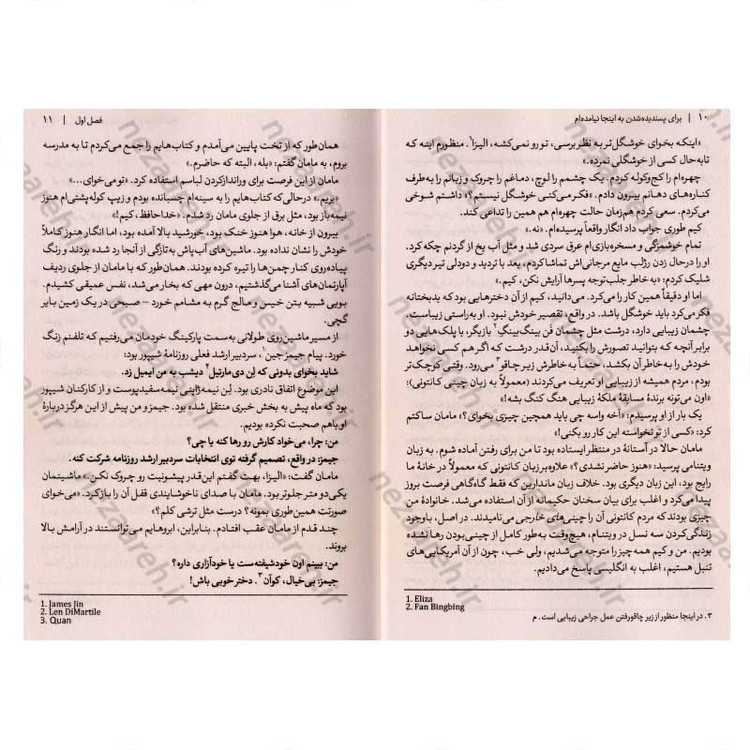 ۱۰ | برای پسندیده‌شدن به اینجا نیامده‌ام
«اینکه بخوای خوشگل‌تر به نظر برسی، تو رو نمی‌کشه، الیزا۱. منظورم اینه که
تا‌به‌حال کسی از خوشگلی نمرده.»
چهره‌ام را کج‌وکوله کردم. یک چشمم را لوچ، دماغم را چروک و زبانم را به‌طرف
کناره‌های دهانم بیرون دادم. «فکر می‌کنی خوشگل نیستم؟» داشتم شوخی
می‌کردم. سعی کردم هم‌زمان حالت چهره‌ام هم همین را تداعی کند.
کیم طوری جواب داد انگار واقعاً پرسیده‌ام. «نه.»
تمام خوشمزگی و مسخره‌بازی‌ام عرق سردی شد و مثل آب یخ از گردنم چکه کرد.
او را درحال زدن رژلب مایع مرجانی‌اش تماشا کردم، بعد با تردید و دودلی تیر دیگری
شلیک کردم: «به‌خاطر جلب‌توجه پسرها آرایش نکن، کیم.»
اما او دقیقاً همین کار را می‌کرد. می‌دانید، کیم از آن دخترهایی بود که بدبختانه
فکر می‌کرد باید خوشگل باشد. در واقع، تقصیر خودش نبود. او به‌راستی زیباست.
چشمان زیبایی دارد، درشت مثل چشمان فَن بینگ‌بینگِ۲ بازیگر، با پلک‌هایی دو
برابر آنچه که بتوانید تصورش را بکنید، آن‌قدر درشت که اگر هم کسی نخواهد
خودش را به‌خاطر آن بکشد، حتماً به خاطرش زیر چاقو۳ می‌رود. وقتی کوچک‌تر
بودم، مردم همیشه از زیبایی او تعریف می‌کردند (معمولاً به زبان چینی کانتونی):
«اون می‌تونه برندۀ مسابقۀ ملکۀ زیبایی هنگ کنگ بشه!»
یک بار از او پرسیدم: «آخه واسه چی باید همچین چیزی بخوای؟» مامان ساکتم
کرد: «کسی از تو نخواسته این کار رو بکنی!»
مامان حالا در آستانۀ در منتظر ایستاده بود تا من برای رفتن آماده شوم. به زبان
ویتنامی پرسید: «هنوز حاضر نشدی؟» علاوه‌بر زبان کانتونی که معمولاً در خانۀ ما
رایج بود، این زبان دیگری بود. خلاف زبان ماندارین که فقط گاه‌گاهی فرصت بروز
پیدا می‌کرد و اغلب برای بیان سخنان حکیمانه از آن استفاده می‌شد. خانوادۀ من
چینی بودند که مردم کانتونی آن را چینی‌های خارجی می‌نامیدند. در اصل، باوجود
زندگی‌کردن سه نسل در ویتنام، هیچ‌وقت به‌طور کامل از چینی‌بودن رها نشده
بودیم. من و کیم همه‌چیز را متوجه می‌شدیم، ولی خب، چون از آن آمریکایی‌های
تنبل هستیم، اغلب به انگلیسی پاسخ می‌دادیم.
1. Eliza
2. Fan Bingbing
۳. در اینجا منظور از زیر چاقو رفتن عمل جراحی زیبایی است. م
فصل اول | ۱۱
همان‌طور که از تخت پایین می‌آمدم و کتاب‌هایم را جمع می‌کردم تا به مدرسه
بروم، به مامان گفتم: «بله، البته که حاضرم.»
مامان از این فرصت برای ورانداز کردن لباسم استفاده کرد. «تو می‌خوای...»
«بریم.» درحالی‌که کتاب‌هایم را به سینه‌ام چسبانده بودم و زیپ کوله‌پشتی‌ام هنوز
نیمه‌باز بود، مثل برق از جلوی مامان رد شدم. «خداحافظ، کیم!»
بیرون از خانه، هوا هنوز خنک بود، خورشید بالا آمده بود، اما انگار هنوز کاملاً
خودش را نشان نداده بود. ماشین‌های آب‌پاش به‌تازگی از آنجا رد شده بودند و رنگ
پیاده‌روی کنار چمن‌ها را تیره کرده بودند. همان‌طور که با مامان از جلوی ردیف
آپارتمان‌های آشنا می‌گذشتیم، درون مهی که بخار می‌شد، نفس عمیقی کشیدم.
بویی شبیه بتن خیس و مالچ گرم به مشامم خورد – صبحی در یک زمین بایر
گچی.
از مسیر ماشین‌روی طولانی به‌سمت پارکینگ خودمان می‌رفتیم که تلفنم زنگ
خورد. پیام جیمز جین۱، سردبیر ارشد فعلی روزنامۀ شیپور بود.
شاید بخوای بدونی که لِن دی‌مارتیل۲ دیشب به من ایمیل زد.
این موضوع اتفاق نادری بود. لِن نیمه‌ژاپنی نیمه‌سفیدپوست و از کارکنان شیپور
بود که ماه پیش به بخش خبری منتقل شده بود. جیمز و من پیش از این هرگز دربارۀ
او باهم صحبت نکرده بودیم.
من: چرا، می‌خواد کارش رو رها کنه یا چی؟
جیمز: در واقع، تصمیم گرفته توی انتخابات سردبیر ارشد روزنامه شرکت کنه.
مامان گفت: «الیزا، بهت گفتم این‌قدر پیشونیت رو چروک نکن.» ماشینمان
یکی‌دو متر جلوتر بود. مامان با صدای ناخوشایندی قفل آن را باز کرد. «می‌خوای
صورتت همین‌طوری بمونه؟ درست مثل ترشی کلم؟»
چند قدم از مامان عقب افتادم. بنابراین، ابروهایم می‌توانستند در آرامش بالا
بروند.
من: ببینم اون خودشیفته‌ست یا خودآزاری داره؟
جیمز: بی‌خیال، کوآن۳. دختر خوبی باش!
1. James Jin
2. Len DiMartile
3. Quan
nezareh.ir